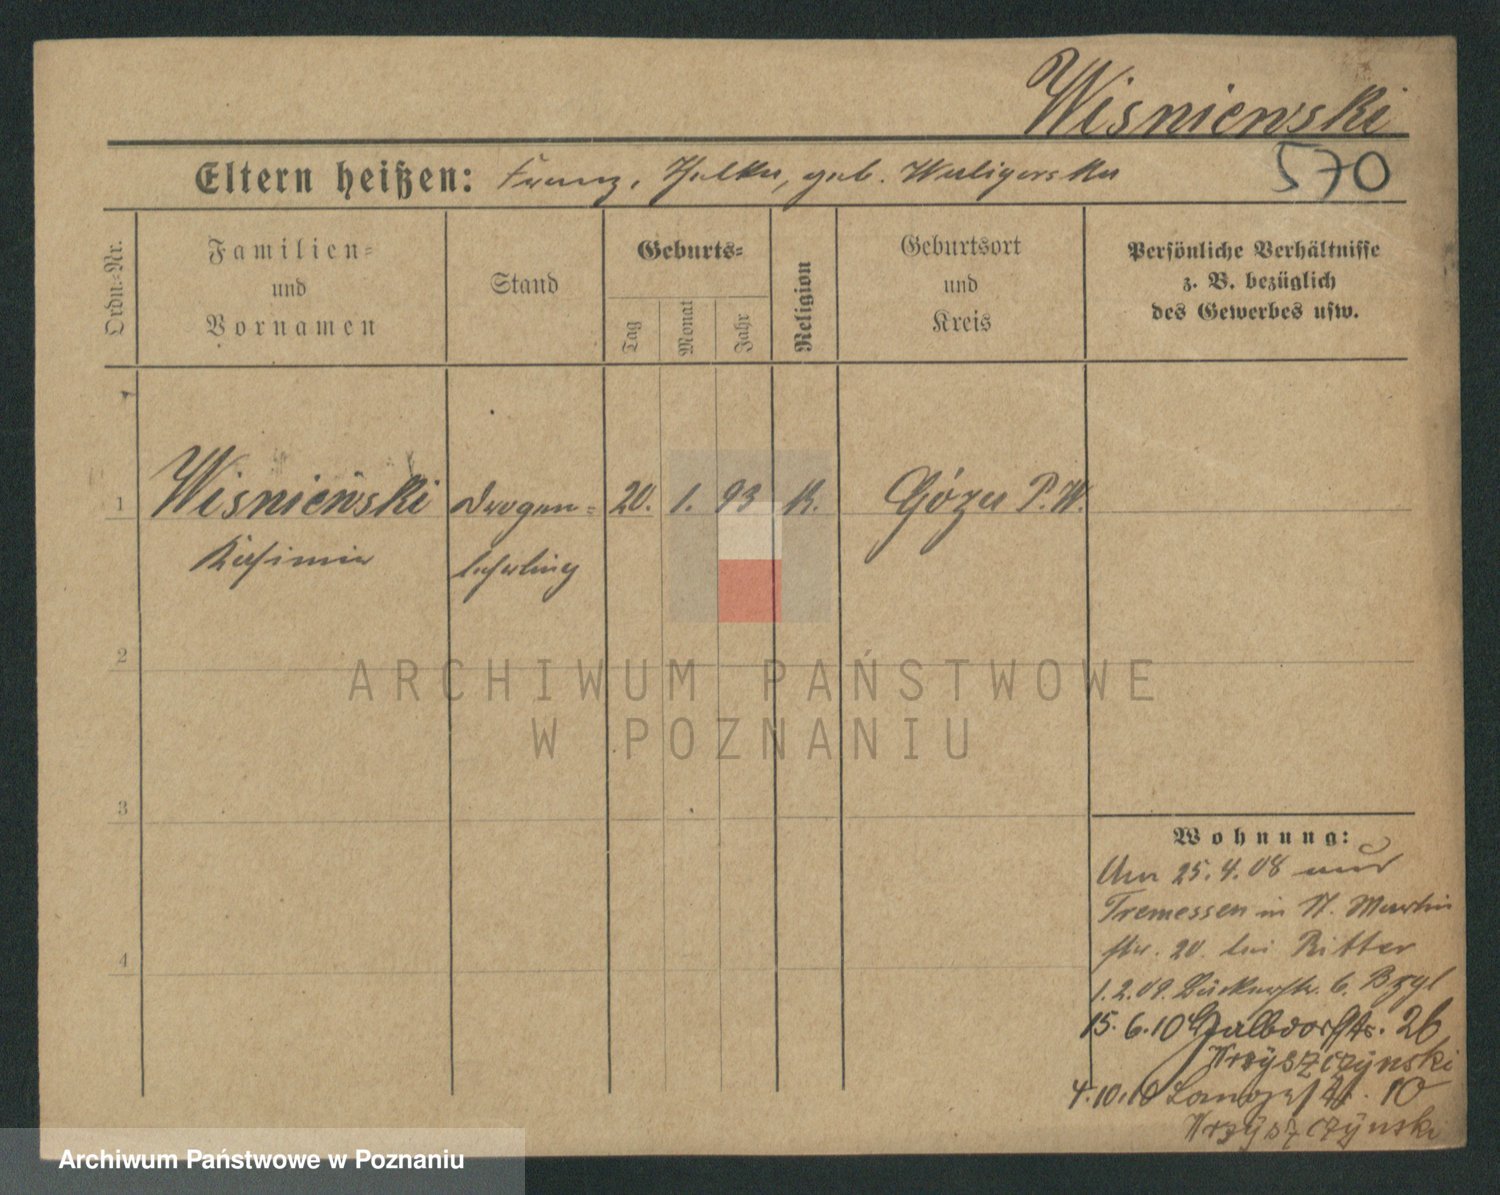 Wisniewski
Eltern heißen: Franz, Thekla, geb. Waligorska
570
Ordn.-Nr.
Familien-
und
Vornamen
Stand
Geburts-
Tag
Monat
Jahr
Religion
Geburtsort
und
Kreis
Persönliche Verhältnisse
z. B. bezüglich
des Gewerbes usw.
1 Wisniewski Drogen- 20. 1. 93 K. Góra P. W.
Kasimir lehrling
2
3
4
Wohnung:
Am 25.4.08 aus
Tremessen in St. Martin
str. 20. bei Ritter
1.2.09. Bäckerstr. 6. Bzyl
15.6.10 Halbdorfstr. 26
Krzyszczynski
4.10.10 Langestr. 10
Krzyszczynski
ARCHIWUM PAŃSTWOWE
W POZNANIU
Archiwum Państwowe w Poznaniu